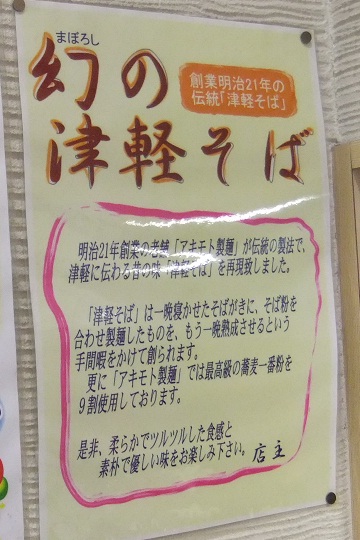 まぼろし
幻の
津軽そば
創業明治21年の
伝統「津軽そば」
明治21年創業の老舗「アキモト製麺」が伝統の製法で、
津軽に伝わる昔の味「津軽そば」を再現致しました。
「津軽そば」は一晩寝かせたそばがきに、そば粉を
合わせ製麺したものを、もう一晩熟成させるという
手間暇をかけて創られます。
更に「アキモト製麺」では最高級の蕎麦一番粉を
９割使用しております。
是非、柔らかでツルツルした食感と
素朴で優しい味をお楽しみ下さい。 店主